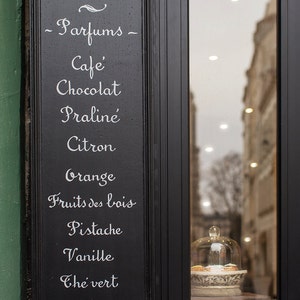 ~ Parfums ~
Café
Chocolat
Praliné
Citron
Orange
Fruits des bois
Pistache
Vanille
Thé vert